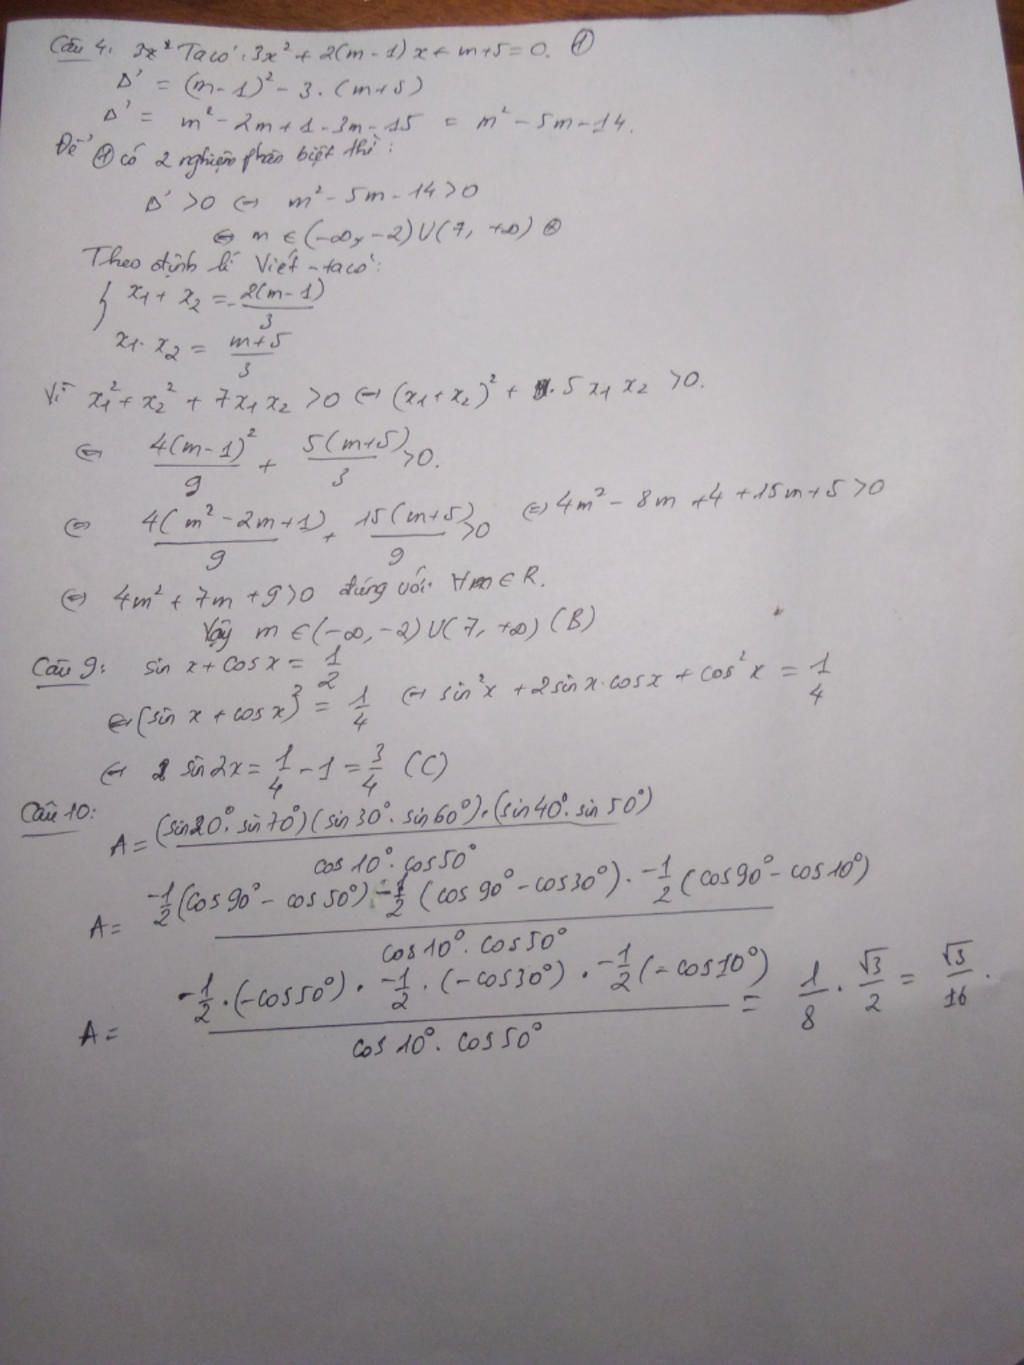 Câu 4. 3x² Ta có: 3x² + 2(m-1)x + m+5 = 0. ①
Δ' = (m-1)² - 3.(m+5)
Δ' = m² - 2m + 1 - 3m - 15 = m² - 5m - 14.
Để ① có 2 nghiệm phân biệt thì:
Δ' > 0 ⇔ m² - 5m - 14 > 0
⇔ m ∈ (-∞, -2) ∪ (7, +∞) ⊗
Theo định lí Viét - ta có:
{ x₁ + x₂ = -2(m-1)/3
x₁. x₂ = (m+5)/3
Vì x₁² + x₂² + 7x₁x₂ > 0 ⇔ (x₁ + x₂)² + 5x₁x₂ > 0.
⇔ 4(m-1)²/9 + 5(m+5)/3 > 0.
⇔ 4(m² - 2m + 1)/9 + 15(m+5)/9 > 0 ⇔ 4m² - 8m + 4 + 15m + 5 > 0
⇔ 4m² + 7m + 9 > 0 đúng với ∀m ∈ R.
Vậy m ∈ (-∞, -2) ∪ (7, +∞) (B)
Câu 9: sin x + cos x = 1/2
⇔ (sin x + cos x)² = 1/4 ⇔ sin²x + 2sin x. cos x + cos²x = 1/4
⇔ sin 2x = 1/4 - 1 = 3/4 (C)
Câu 10:
A = (sin20°. sin70°)(sin30°. sin60°).(sin40°. sin50°) / cos10°. cos50°
A = -1/2(cos90° - cos50°) -1/2 (cos90° - cos30°) . -1/2 (cos90° - cos10°) / cos10°. cos50°
A = -1/2.(-cos50°) . -1/2 . (-cos30°) . -1/2 (-cos10°) / cos10°. cos50° = 1/8 . √3/2 = √3/16 .